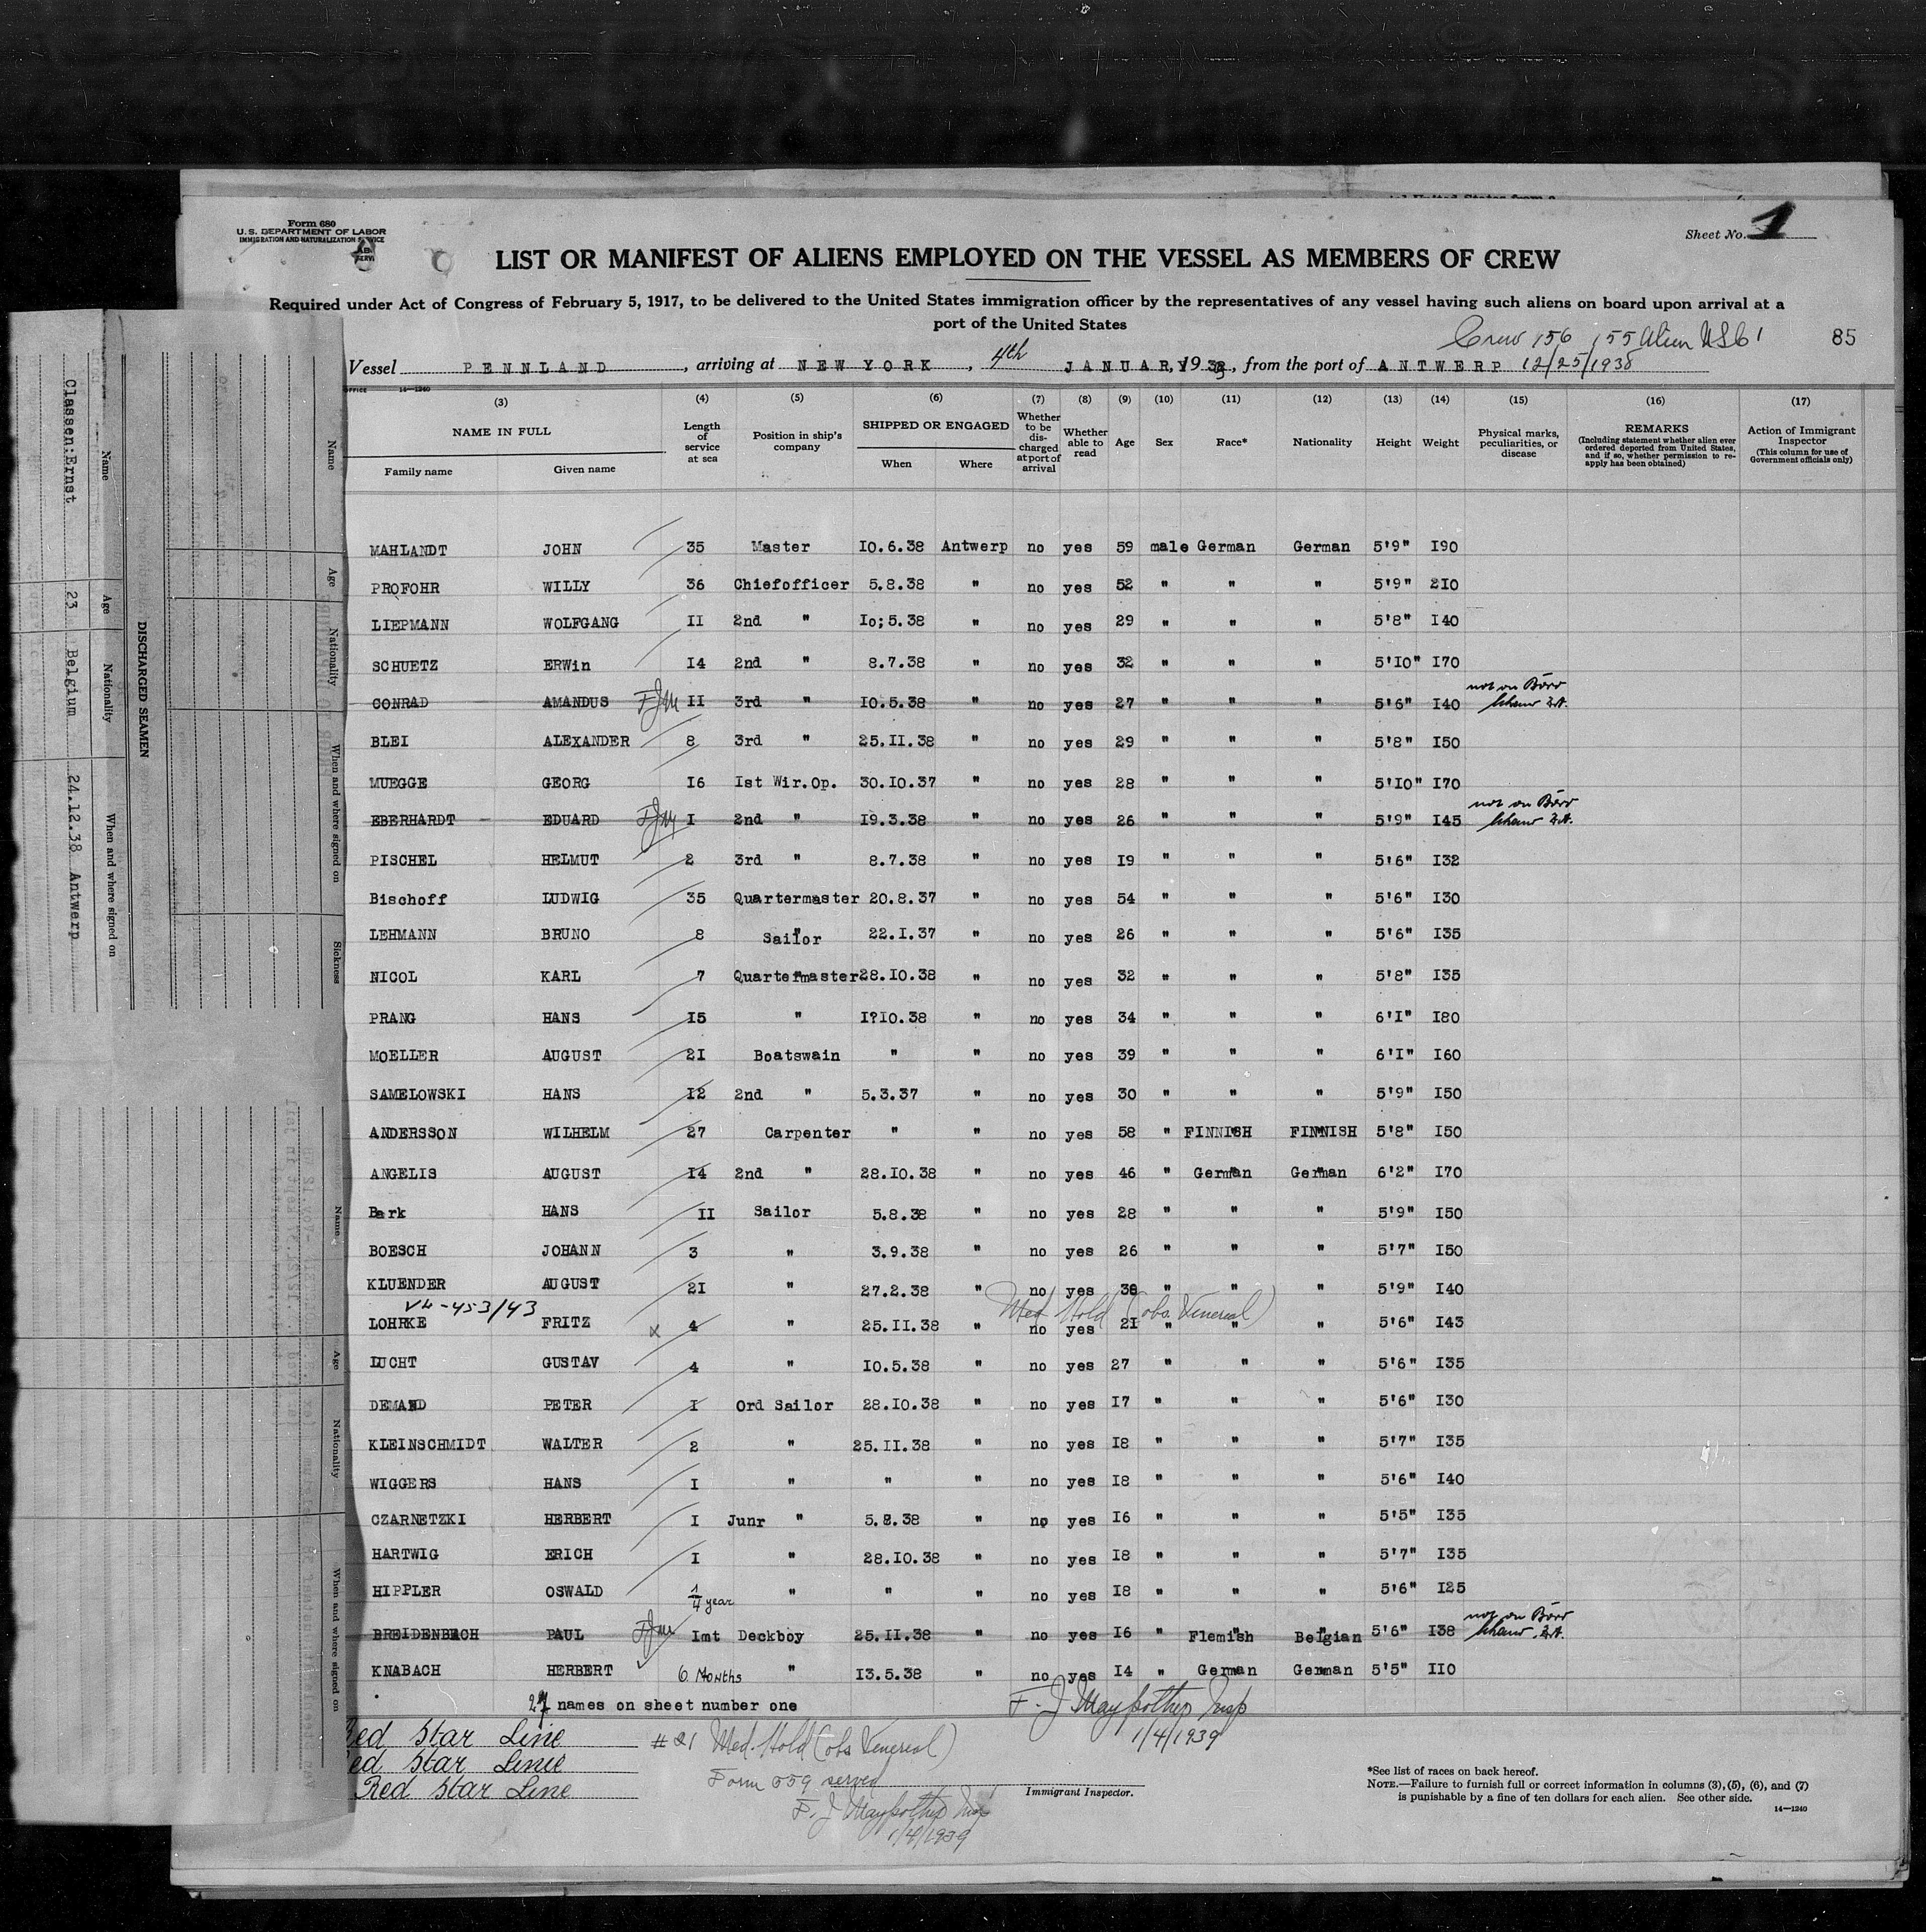 Form 680
U.S. DEPARTMENT OF LABOR
IMMIGRATION AND NATURALIZATION SERVICE
Sheet No. 1
LIST OR MANIFEST OF ALIENS EMPLOYED ON THE VESSEL AS MEMBERS OF CREW
Required under Act of Congress of February 5, 1917, to be delivered to the United States immigration officer by the representatives of any vessel having such aliens on board upon arrival at a
port of the United States
Crew 156 155 Alien USC 1 85
Vessel PENNLAND, arriving at NEW YORK, 4th JANUARY, 193, from the port of ANTWERP 12/25/1938
14—1240
(3) (4) (5) (6) (7) (8) (9) (10) (11) (12) (13) (14) (15) (16) (17)
NAME IN FULL
Family name Given name
Length of service at sea
Position in ship's company
SHIPPED OR ENGAGED
When Where
Whether to be discharged at port of arrival
Whether able to read
Age
Sex
Race*
Nationality
Height
Weight
Physical marks, peculiarities, or disease
REMARKS
(Including statement whether alien ever ordered deported from United States, and if so, whether permission to reapply has been obtained)
Action of Immigrant Inspector
(This column for use of Government officials only)
MAHLANDT JOHN 35 Master I0.6.38 Antwerp no yes 59 male German German 5'9" I90
PROFOHR WILLY 36 Chiefofficer 5.8.38 " no yes 52 " " " 5'9" 2I0
LIEPMANN WOLFGANG II 2nd " Io;5.38 " no yes 29 " " " 5'8" I40
SCHUETZ ERWin I4 2nd " 8.7.38 " no yes 32 " " " 5'I0" I70
CONRAD AMANDUS FJM II 3rd " I0.5.38 " no yes 27 " " " 5'6" I40 not on
BLEI ALEXANDER 8 3rd " 25.II.38 " no yes 29 " " " 5'8" I50
MUEGGE GEORG I6 Ist Wir.Op. 30.I0.37 " no yes 28 " " " 5'I0" I70
EBERHARDT EDUARD FJM I 2nd " I9.3.38 " no yes 26 " " " 5'9" I45 not on
PISCHEL HELMUT 2 3rd " 8.7.38 " no yes I9 " " " 5'6" I32
Bischoff LUDWIG 35 Quartermaster 20.8.37 " no yes 54 " " " 5'6" I30
LEHMANN BRUNO 8 Sailor 22.I.37 " no yes 26 " " " 5'6" I35
NICOL KARL 7 Quartermaster 28.I0.38 " no yes 32 " " " 5'8" I35
PRANG HANS I5 " I?I0.38 " no yes 34 " " " 6'I" I80
MOELLER AUGUST 2I Boatswain " " no yes 39 " " " 6'I" I60
SAMELOWSKI HANS I2 2nd " 5.3.37 " no yes 30 " " " 5'9" I50
ANDERSSON WILHELM 27 Carpenter " " no yes 58 " FINNISH FINNISH 5'8" I50
ANGELIS AUGUST I4 2nd " 28.I0.38 " no yes 46 " German German 6'2" I70
Bark HANS II Sailor 5.8.38 " no yes 28 " " " 5'9" I50
BOESCH JOHANN 3 " 3.9.38 " no yes 26 " " " 5'7" I50
KLUENDER AUGUST 2I " 27.2.38 " no yes 38 " " " 5'9" I40
V4-453/43 Med Hold (obs. Venereal)
LOHRKE FRITZ x 4 " 25.II.38 " no yes 2I " " " 5'6" I43
LUCHT GUSTAV 4 " I0.5.38 " no yes 27 " " " 5'6" I35
DEMAND PETER I Ord Sailor 28.I0.38 " no yes I7 " " " 5'6" I30
KLEINSCHMIDT WALTER 2 " 25.II.38 " no yes I8 " " " 5'7" I35
WIGGERS HANS I " " " no yes I8 " " " 5'6" I40
CZARNETZKI HERBERT I Junr " 5.8.38 " no yes I6 " " " 5'5" I35
HARTWIG ERICH I " 28.I0.38 " no yes I8 " " " 5'7" I35
HIPPLER OSWALD 1/4 year " " " no yes I8 " " " 5'6" I25
BREIDENBACH PAUL FJM Imt Deckboy 25.II.38 " no yes I6 " Flemish Belgian 5'6" I38 not on
KNABACH HERBERT 6 Months " I3.5.38 " no yes I4 " German German 5'5" II0
27 names on sheet number one F. J. Maypother Insp
1/4/1939
Red Star Line
Red Star Linie
Red Star Line
#21 Med. Hold (obs Venereal)
Form 559 served
F. J Maypother Insp
1/4/1939
Immigrant Inspector.
*See list of races on back hereof.
NOTE.—Failure to furnish full or correct information in columns (3), (5), (6), and (7)
is punishable by a fine of ten dollars for each alien. See other side.
14—1240
DISCHARGED SEAMEN
Name Age Nationality When and where signed on
Classen:Ernst 23 Belgium 24.12.38 Antwerp
Name Age Nationality When and where signed on Sickness
Name Age Nationality When and where signed on